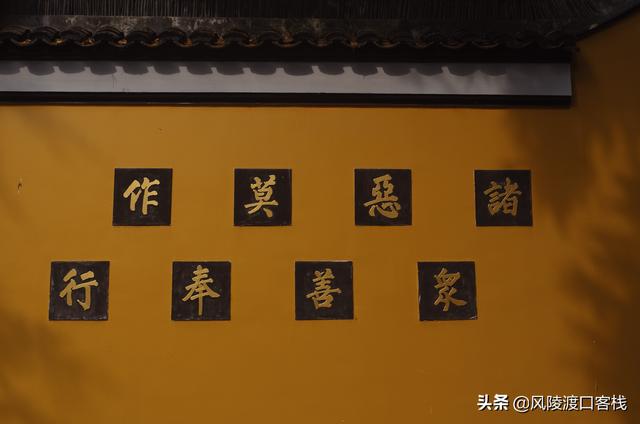 諸惡莫作
眾善奉行
头条 @风陵渡口客栈